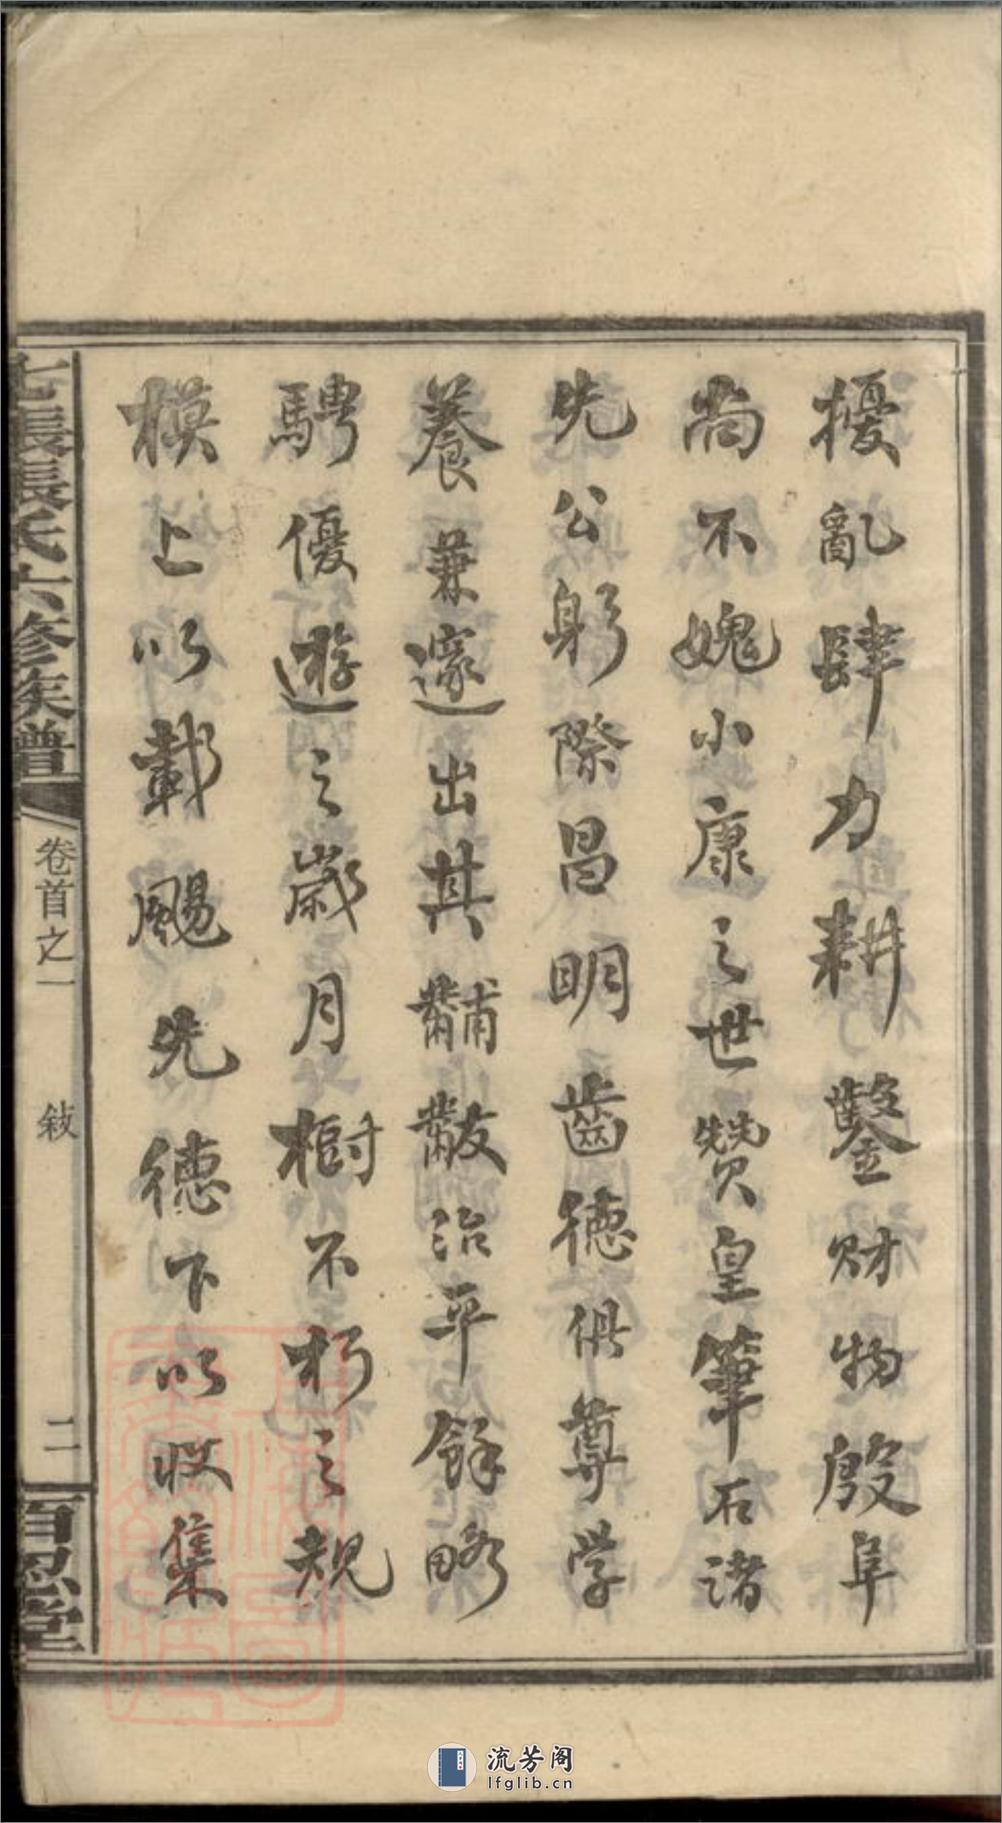 擾亂肆力耕鑿財物殷阜
尚不媿小康之世贊皇筆石諸
先公躬際昌明齒德俱尊学
養兼邃出其黼黻治平餘略
騁優遊之歲月樹不朽之規
模上以載颺先德下以收集
七張張氏六修族譜
卷首之一
敍
二
百忍堂
流芳阁
lfglib.cn